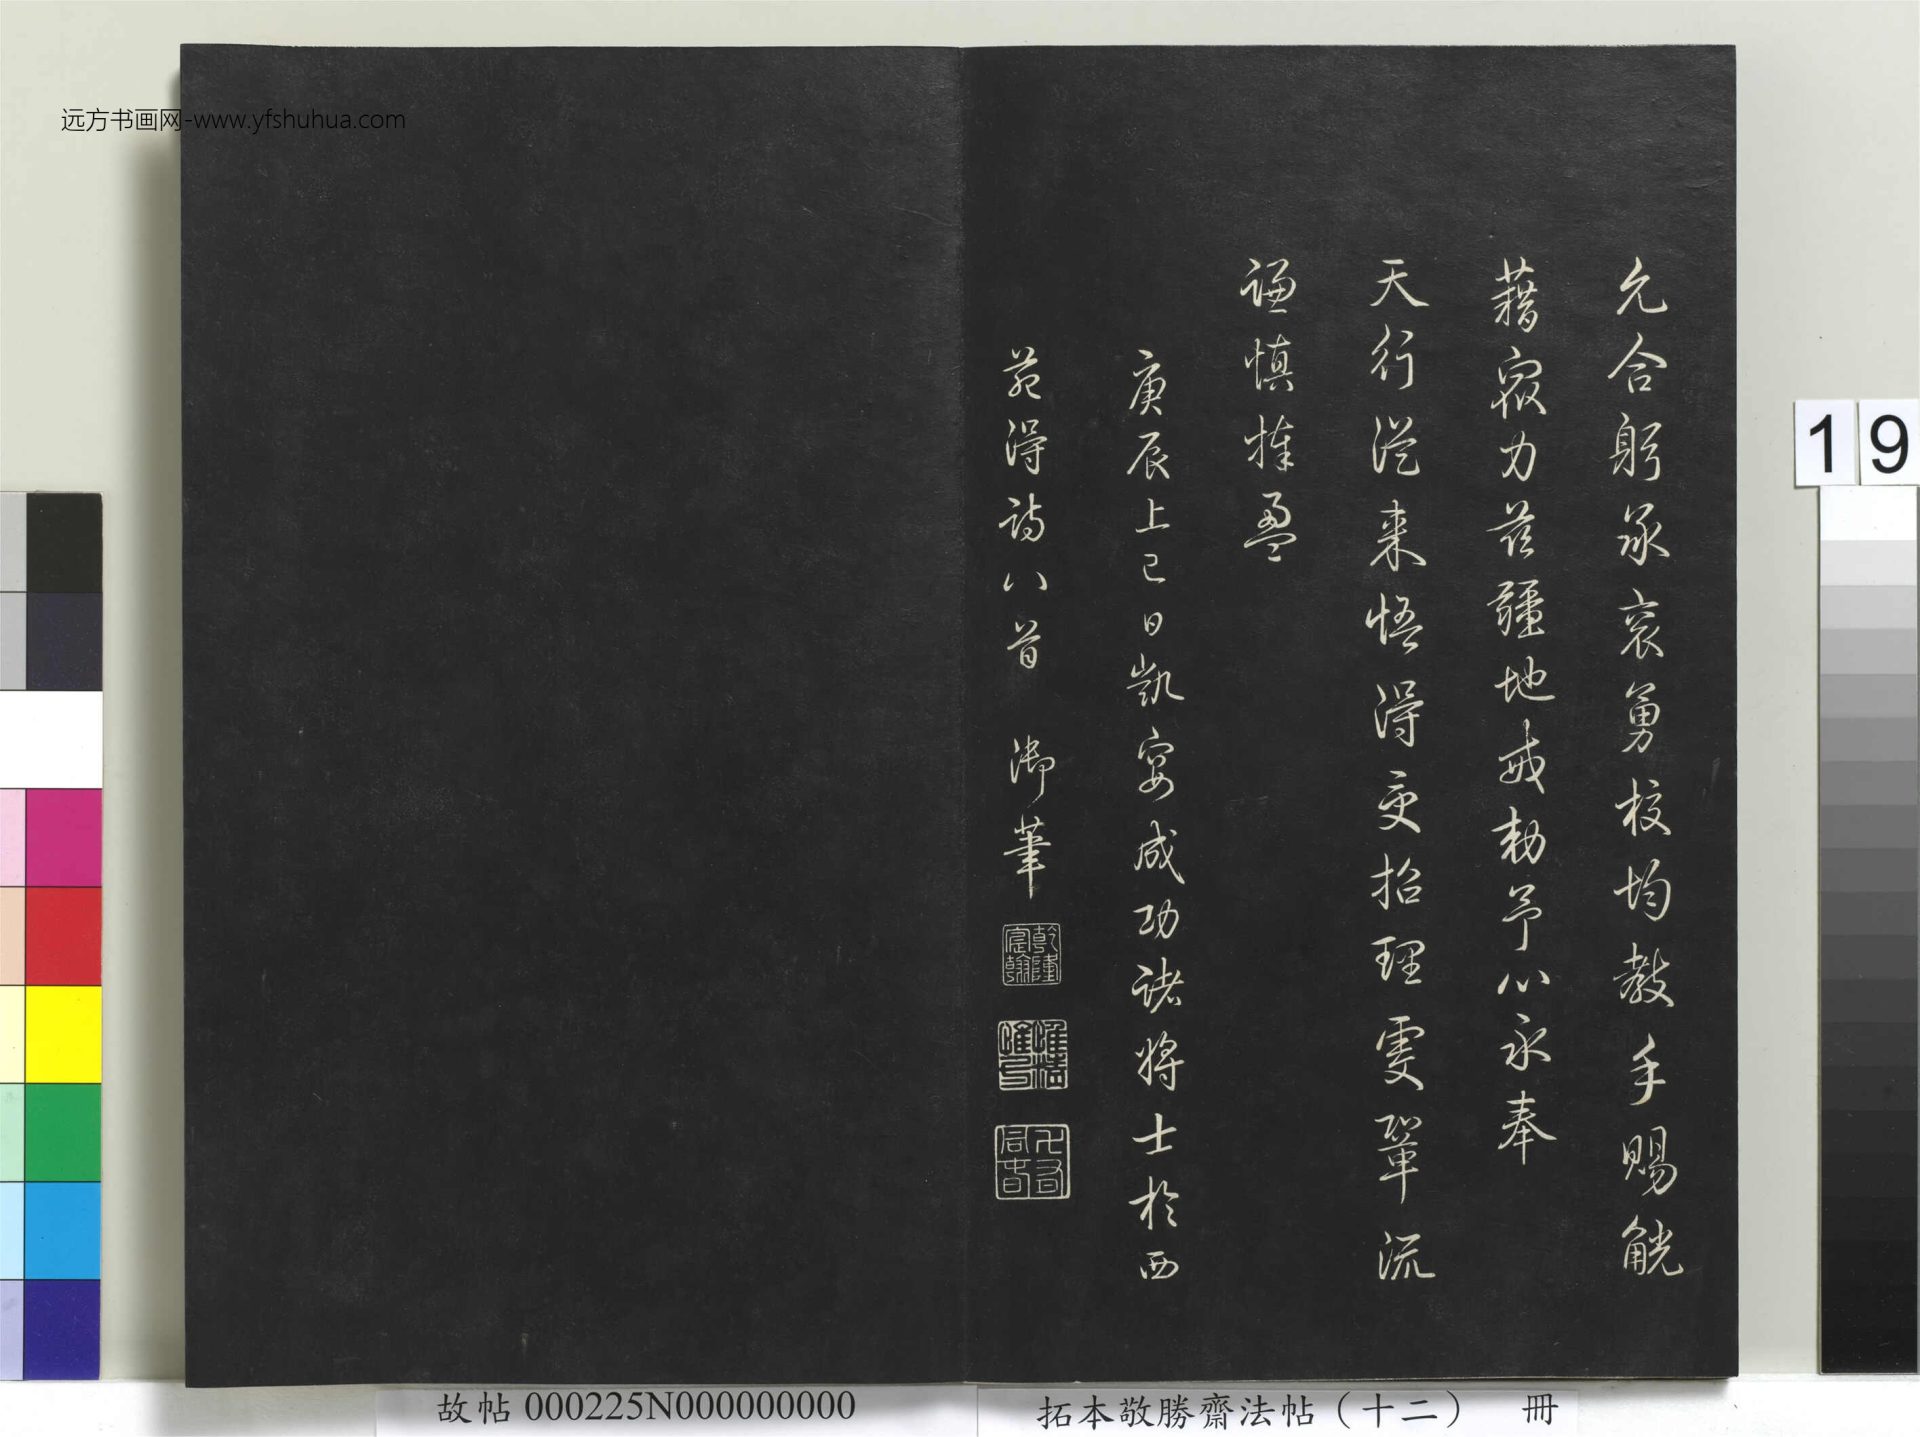 允合躬承衮勇校均教手賜觥
藉眾力茲疆地戒勅予心永奉
天行從來悟得更招理雯鞏流
謙慎捧盈
庚辰上巳日凱宴成功諸將士於西
苑得詩八首 御筆
乾隆宸翰
惟精惟一
故帖 000225N000000000
拓本敬勝齋法帖（十二） 冊
19
远方书画网-www.yfshuhua.com